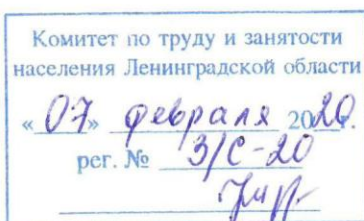 Комитет по труду и занятости
населения Ленинградской области
«07» февраля 2020г.
рег. № 3/С-20